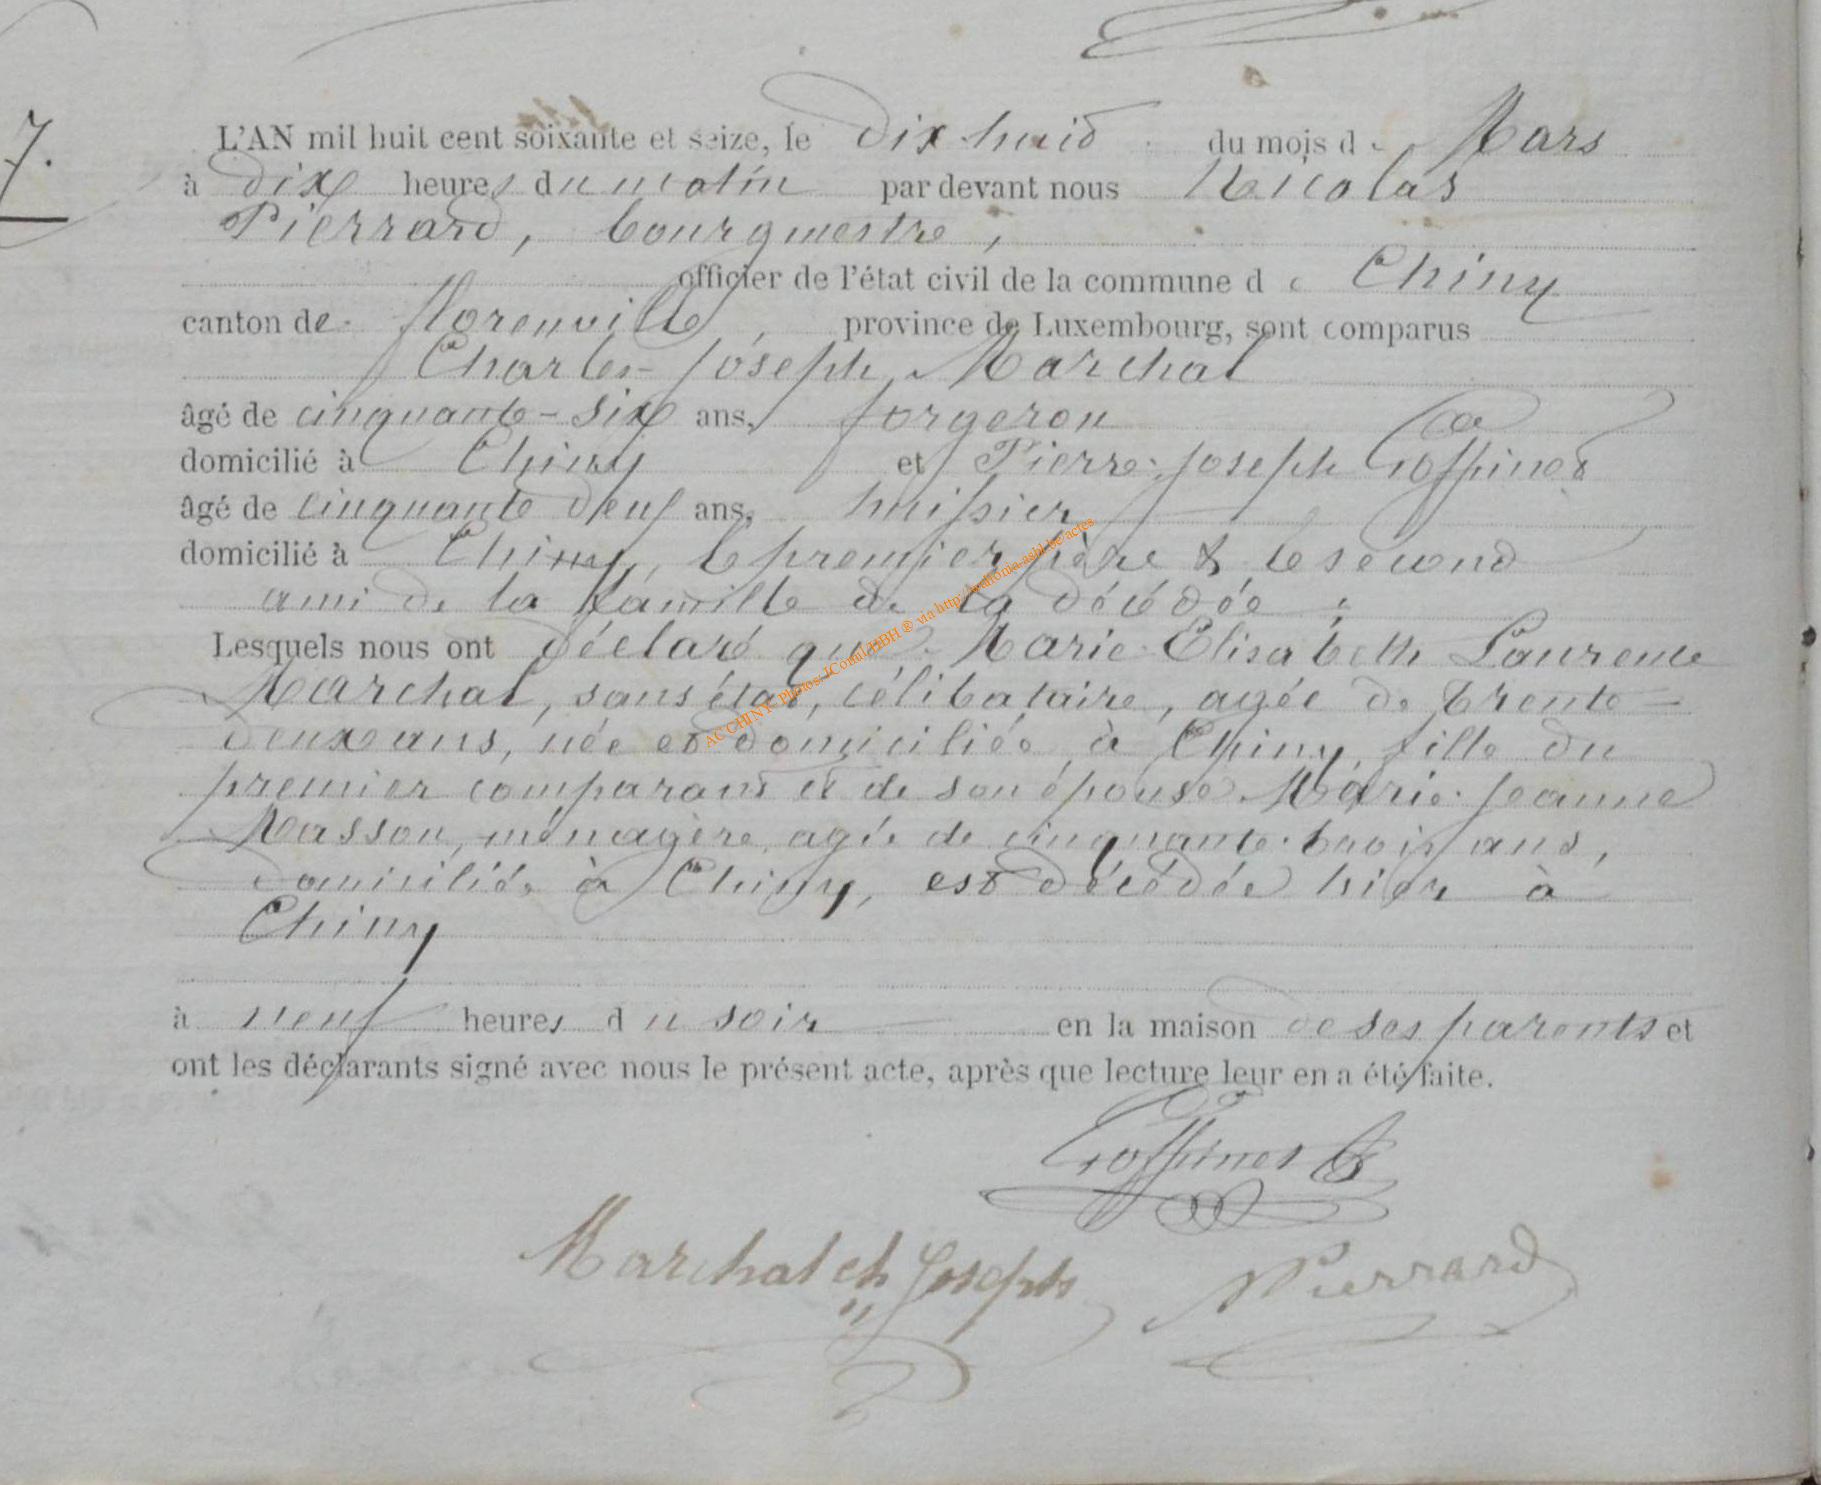 7.
L'AN mil huit cent soixante et seize, le dix-huit du mois de Mars
à dix heures du matin par devant nous Nicolas
Pierrard, bourgmestre,
officier de l'état civil de la commune de Chiny
canton de Florenville, province de Luxembourg, sont comparus
Charles-Joseph Marchal
âgé de cinquante-six ans, forgeron
domicilié à Chiny et Pierre-Joseph Goffinet
âgé de cinquante neuf ans, huissier
domicilié à Chiny, le premier père & le second
ami de la famille de la décédée;
Lesquels nous ont déclaré que Marie-Elisabeth Laurence
Marchal, sans état, célibataire, agée de trente-
deux ans, née et domiciliée à Chiny, fille du
premier comparant et de son épouse Marie-Jeanne
Masson, ménagère, agée de cinquante-trois ans,
domiciliée à Chiny, est décédée hier à
Chiny
à neuf heures du soir en la maison de ses parents et
ont les déclarants signé avec nous le présent acte, après que lecture leur en a été faite.
Goffinet
Marchal ch Joseph NPierrard
AC CHINY- photos: JCornil HBH ® via http://wallonia-asbl.be/actes